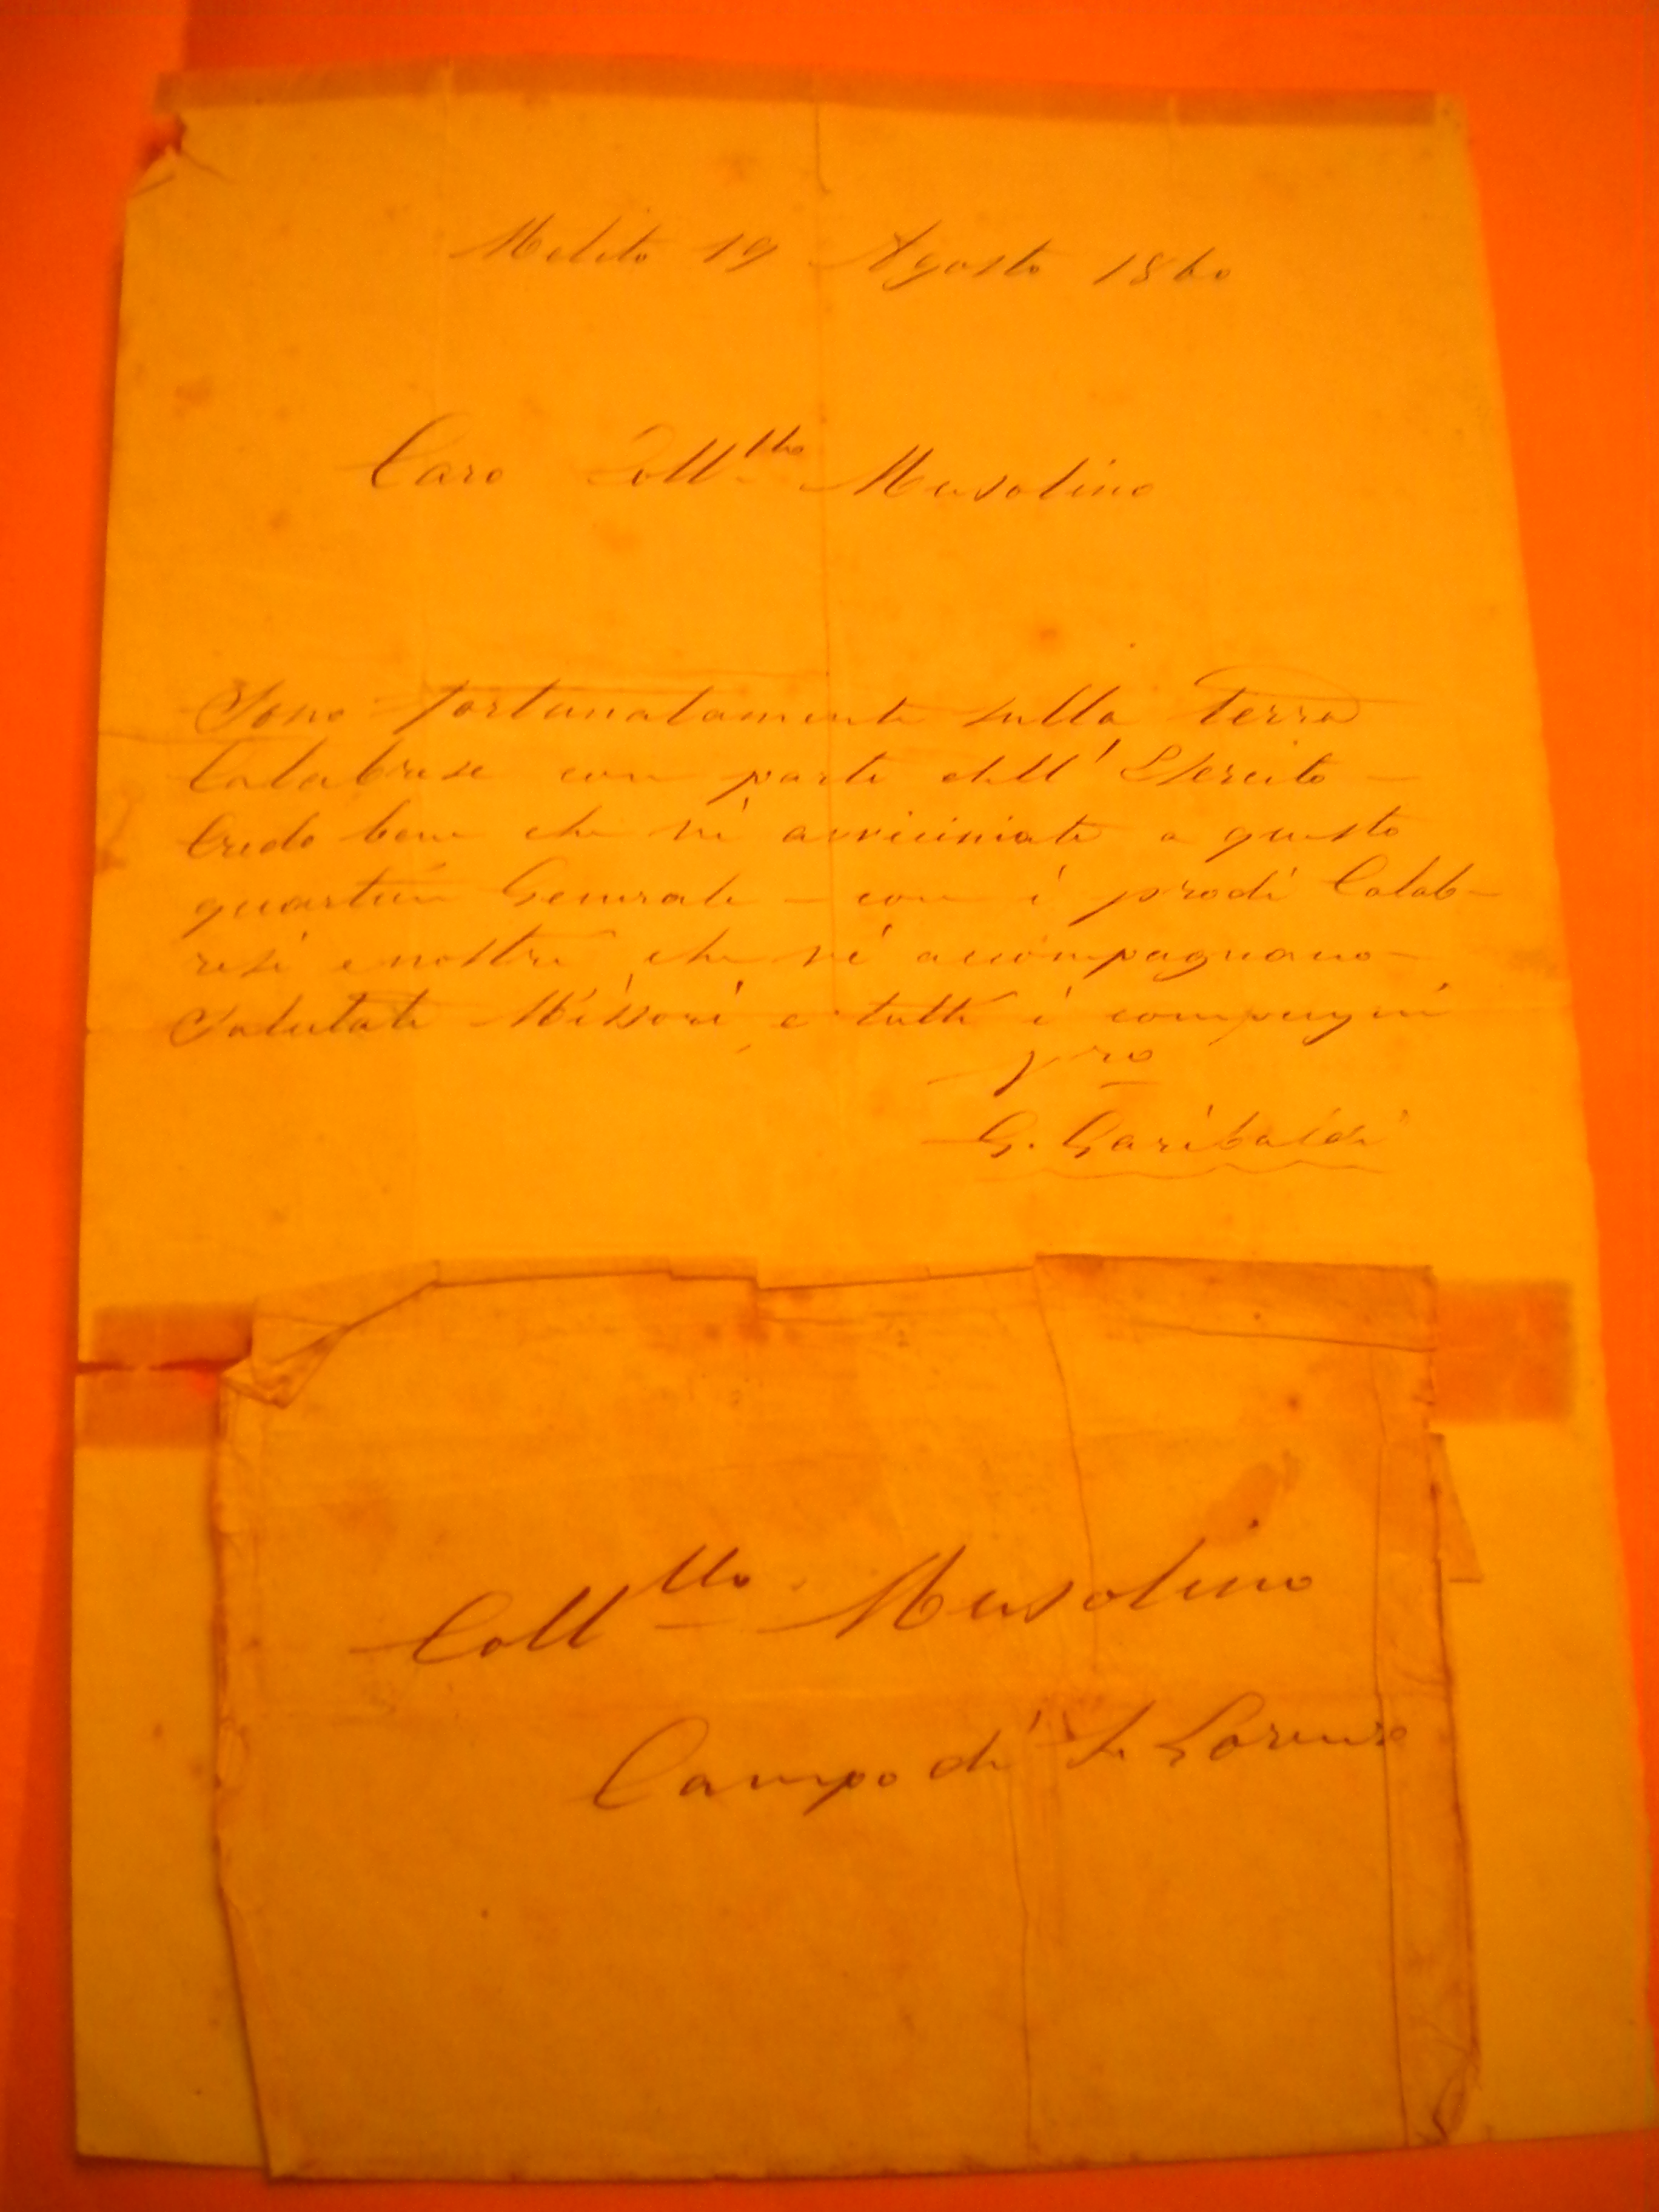 Melito 19 Agosto 1860
Caro Coll.llo Musolino
Sono fortunatamente sulla Terra
Calabrese con parte dell' Esercito —
Credo bene che vi avviciniate a questo
quartier Generale — con i prodi Calab-
resi e nostri che vi accompagnano —
Salutate Missori e tutti i compagni
G. Garibaldi
Coll.llo Musolino
Campo di S. Lorenzo